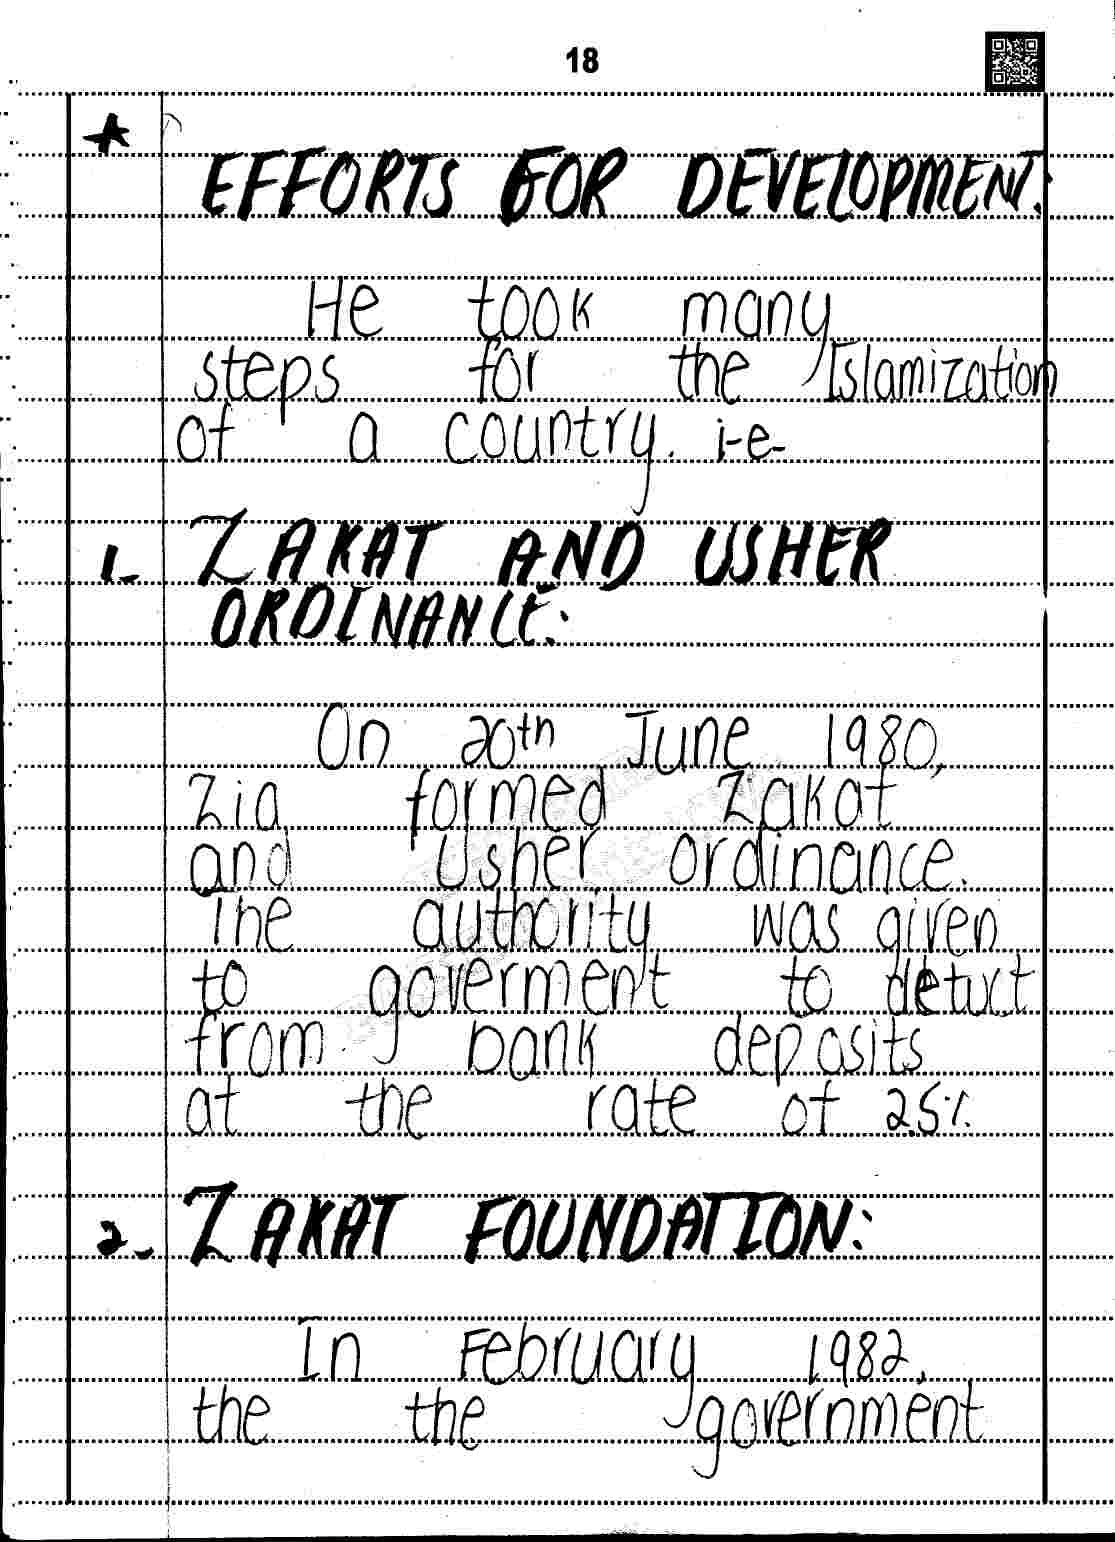 18
★
EFFORTS FOR DEVELOPMENT:
He took many
steps for the Islamization
of a country. i-e-
1- ZAKAT AND USHER
ORDINANCE:
On 20th June 1980,
Zia formed Zakat
and Usher ordinance.
The authority was given
to goverment to detuct
from bank deposits
at the rate of 2.5%
2- ZAKAT FOUNDATION:
In February 1982,
the the government